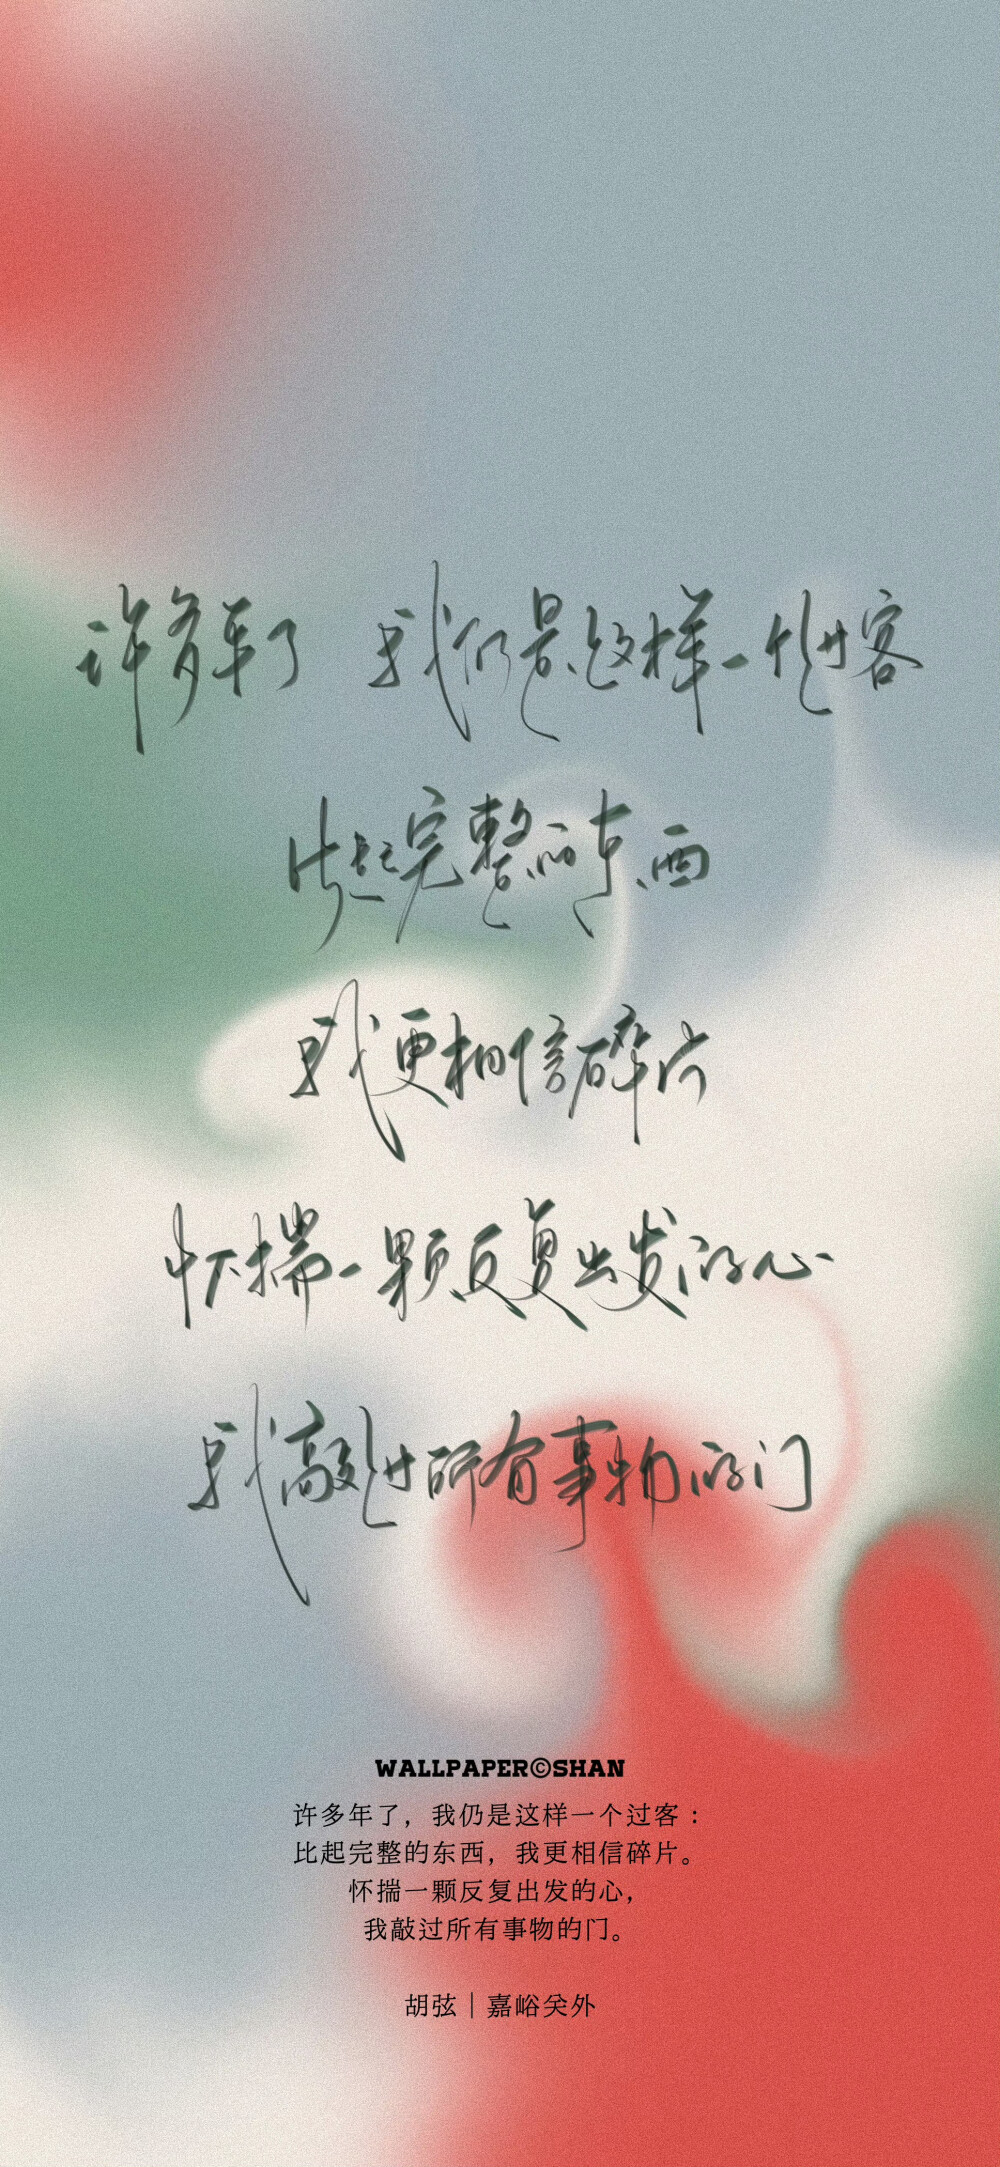 许多年了 我仍是这样一个过客
比起完整的东西
我更相信碎片
怀揣一颗反复出发的心
我敲过所有事物的门
WALLPAPER©SHAN
许多年了，我仍是这样一个过客：
比起完整的东西，我更相信碎片。
怀揣一颗反复出发的心，
我敲过所有事物的门。
胡弦｜嘉峪关外